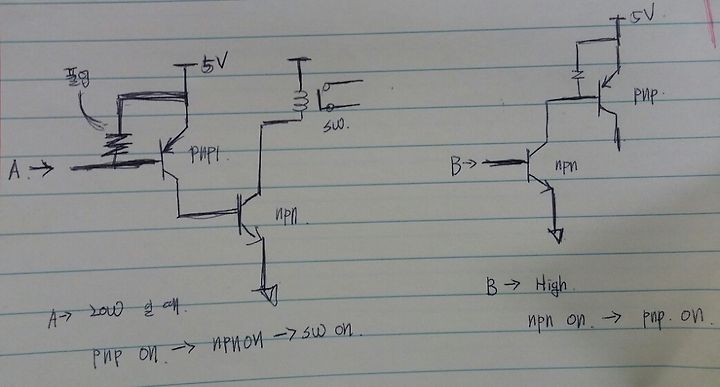 5V
풀업
A →
pnp1.
npn
SW.
5V
pnp.
B →
npn
A → low 일 때.
pnp on. → npn on → SW on.
B → High.
npn on. → pnp. on.